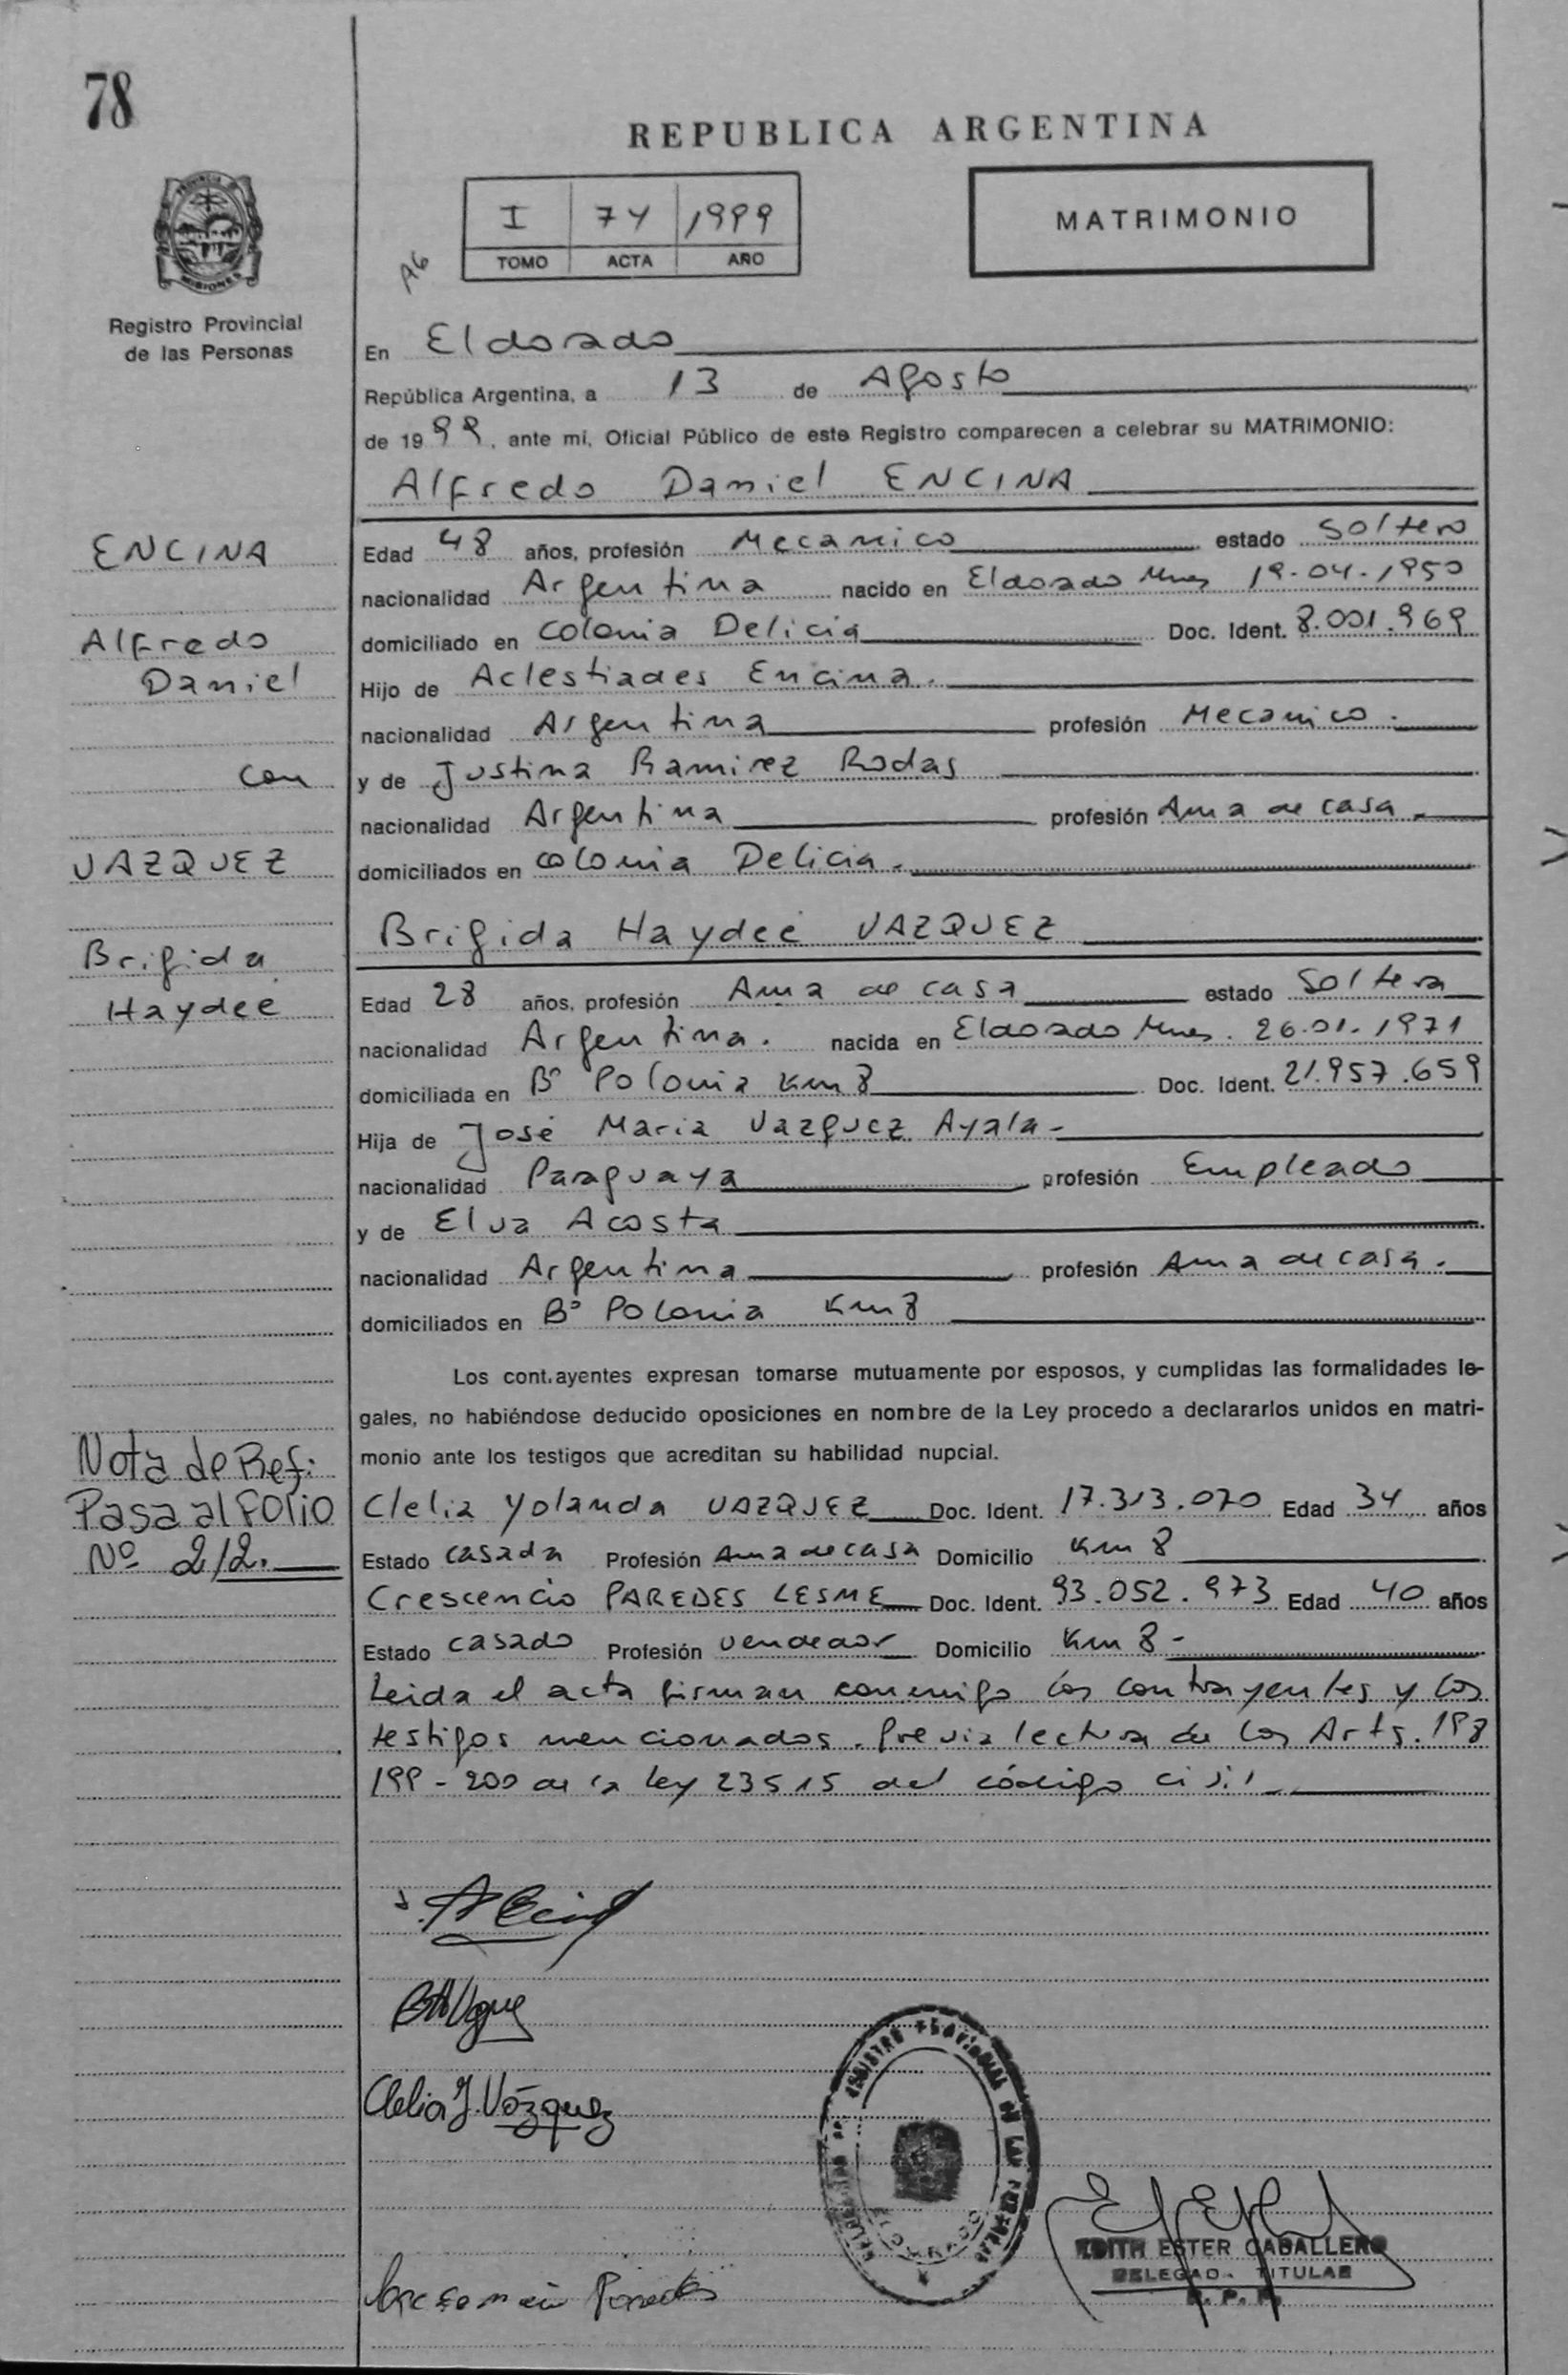 78
REPUBLICA ARGENTINA
I 74 1999
TOMO ACTA AÑO
MATRIMONIO
A6
Registro Provincial
de las Personas
En Eldorado
República Argentina, a 13 de Agosto
de 1999, ante mí, Oficial Público de este Registro comparecen a celebrar su MATRIMONIO:
Alfredo Daniel ENCINA
ENCINA
Alfredo
Daniel
con
VAZQUEZ
Brigida
Haydeé
Edad 48 años, profesión Mecanico estado Soltero
nacionalidad Argentina nacido en Eldorado Mnes 19-04-1950
domiciliado en Colonia Delicia Doc. Ident. 8.001.969
Hijo de Aclestiades Encina.
nacionalidad Argentina profesión Mecanico.
y de Justina Ramirez Rodas
nacionalidad Argentina profesión Ama de casa.
domiciliados en colonia Delicia.
Brigida Haydeé VAZQUEZ
Edad 28 años, profesión Ama de casa estado Soltera
nacionalidad Argentina. nacida en Eldorado Mnes. 26.01.1971
domiciliada en B° Polonia Km 8 Doc. Ident. 21.957.659
Hija de José Maria Vazquez Ayala-
nacionalidad Paraguaya profesión Empleado
y de Elva Acosta
nacionalidad Argentina profesión Ama de casa.
domiciliados en B° Polonia Km 8
Los cont.ayentes expresan tomarse mutuamente por esposos, y cumplidas las formalidades le-
gales, no habiéndose deducido oposiciones en nombre de la Ley procedo a declararlos unidos en matri-
monio ante los testigos que acreditan su habilidad nupcial.
Nota de Ref:
Pasa al FOLIO
Nº 212.
Clelia Yolanda VAZQUEZ Doc. Ident. 17.313.070 Edad 34 años
Estado casada Profesión Ama de casa Domicilio Km 8
Crescencio PAREDES LESME Doc. Ident. 93.052.973 Edad 40 años
Estado casado Profesión vendedor Domicilio Km 8-
Leida el acta firman conmigo los contrayentes y los
testigos mencionados. Previa lectura de los Arts. 198
199-200 de la Ley 23515 del código civil
Clelia Y. Vázquez
EDITH ESTER CABALLERO
DELEGADA TITULAR
R. P. P.
Paredes